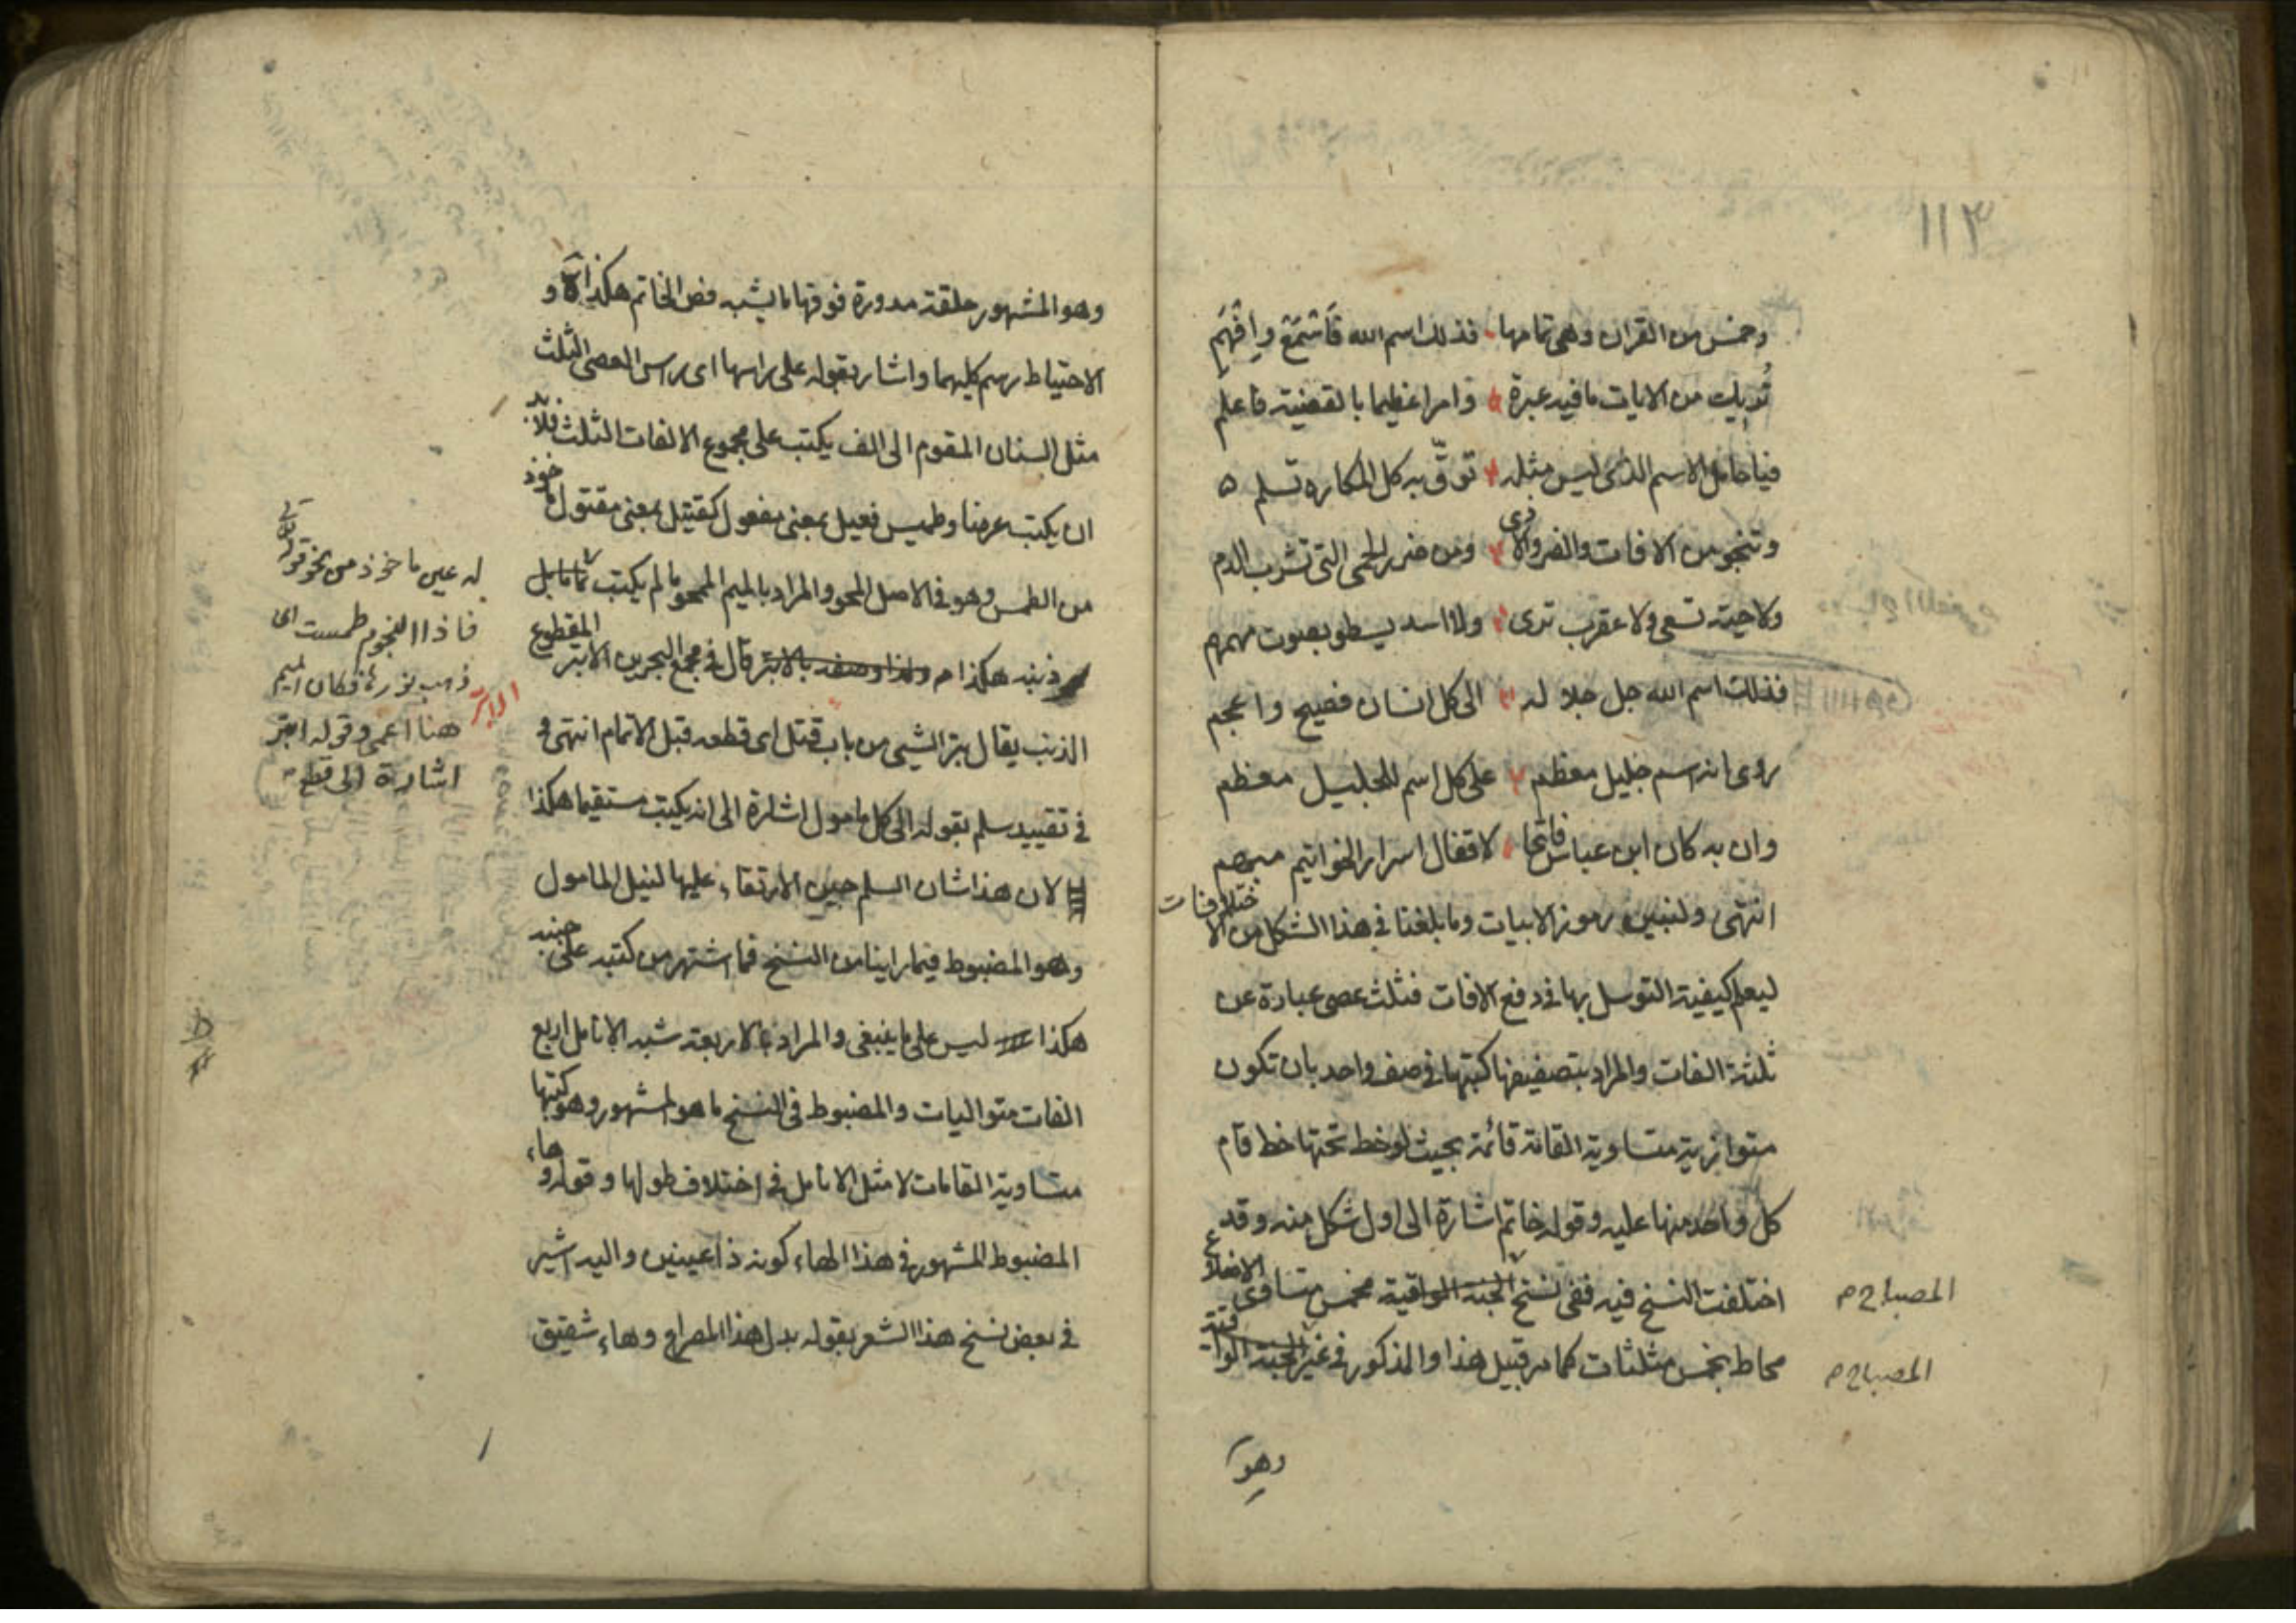 ١١٣
وخمس من القران وهى تمامها فذلك اسم الله فاستمع وافهم
من الايات ما فيه عبرة وامرا عظيما بالقضية فاعلم
فيا حامل الاسم الذى ليس مثله توقّ به كل المكاره تسلم ه
وتنجو من الافات والضر والاذى ومن ضرر الحمى التى تشرب الدم
ولا حية تسعى ولا عقرب ترى ولا اسد يسطو بصوت مهمهم
فذلك اسم الله جل جلاله الى كل انسان فصيح واعجم
روى انه اسم جليل معظم على كل اسم للجليل معظم
وان به كان ابن عباس فاتحا لاقفال اسرار الخواتيم مبهم
انتهى ولنبين رموز الابيات وما بلغنا فى هذا الشكل من الاختلافات
ليعلم كيفية التوسل بها فى دفع الافات فثلث عصى عبارة عن
ثلثة الفات والمراد بتصفيفها كتبتها فى صف واحد بان تكون
متوازية متساوية القامة قائمة بحيث لو خط تحتها خط قام
كل واحد منها عليه وقوله خاتم اشارة الى اول شكل منه وقد
اختلفت النسخ فيه ففى نسخ الجنة الواقية مخمس متساوى الاضلاع
المصباح م
محاط بخمس مثلثات كما مر قبيل هذا والمذكور فى غير الجنة الواقية
المصباح م
وهو
وهو المشهور حلقة مدورة فوقها ما يشبه فص الخاتم هكذا و
الاحتياط رسم كليهما واشار بقوله على راسها اى راس العصى الثلث
مثل السنان المقوم الى الف يكتب على مجموع الالفات الثلث فلا بد
ان يكتب عرضا وطميس فعيل بمعنى مفعول كقتيل بمعنى مقتول ماخوذ
من الطمس وهو فى الاصل المحو والمراد بالميم الممحو ما لم يكتب تماما بل
ذنبه هكذا م ولذا وصفه بالابتر قال فى مجمع البحرين الابتر المقطوع
الذنب يقال بتر الشيى من باب قتل اى قطعه قبل الاتمام انتهى و
فى تقييد سلم بقوله الى كل مامول اشارة الى انه يكتب مستقيما هكذا
لان هذا شان السلم حين الارتقاء عليها لنيل المامول
وهو المضبوط فيما راينا من النسخ فما اشتهر من كتبه على جنبه
هكذا ليس على ما ينبغى والمراد بالاربعة شبه الانامل اربع
الفات متواليات والمضبوط فى النسخ ما هو المشهور وهو كتبها
متساوية القامات لا مثل الانامل فى اختلاف طولها وقوله وهاء
المضبوط المشهور فى هذا الهاء كونه ذا عينين واليه اشير
فى بعض نسخ هذا الشعر بقوله بدل هذا المصراع وهاء شقيق
له عين ماخوذ من نحو قوله تعالى
فاذا النجوم طمست اى
ذهب نوره فكان الميم
هنا اعمى وقوله ابتر
اشارة الى قطع